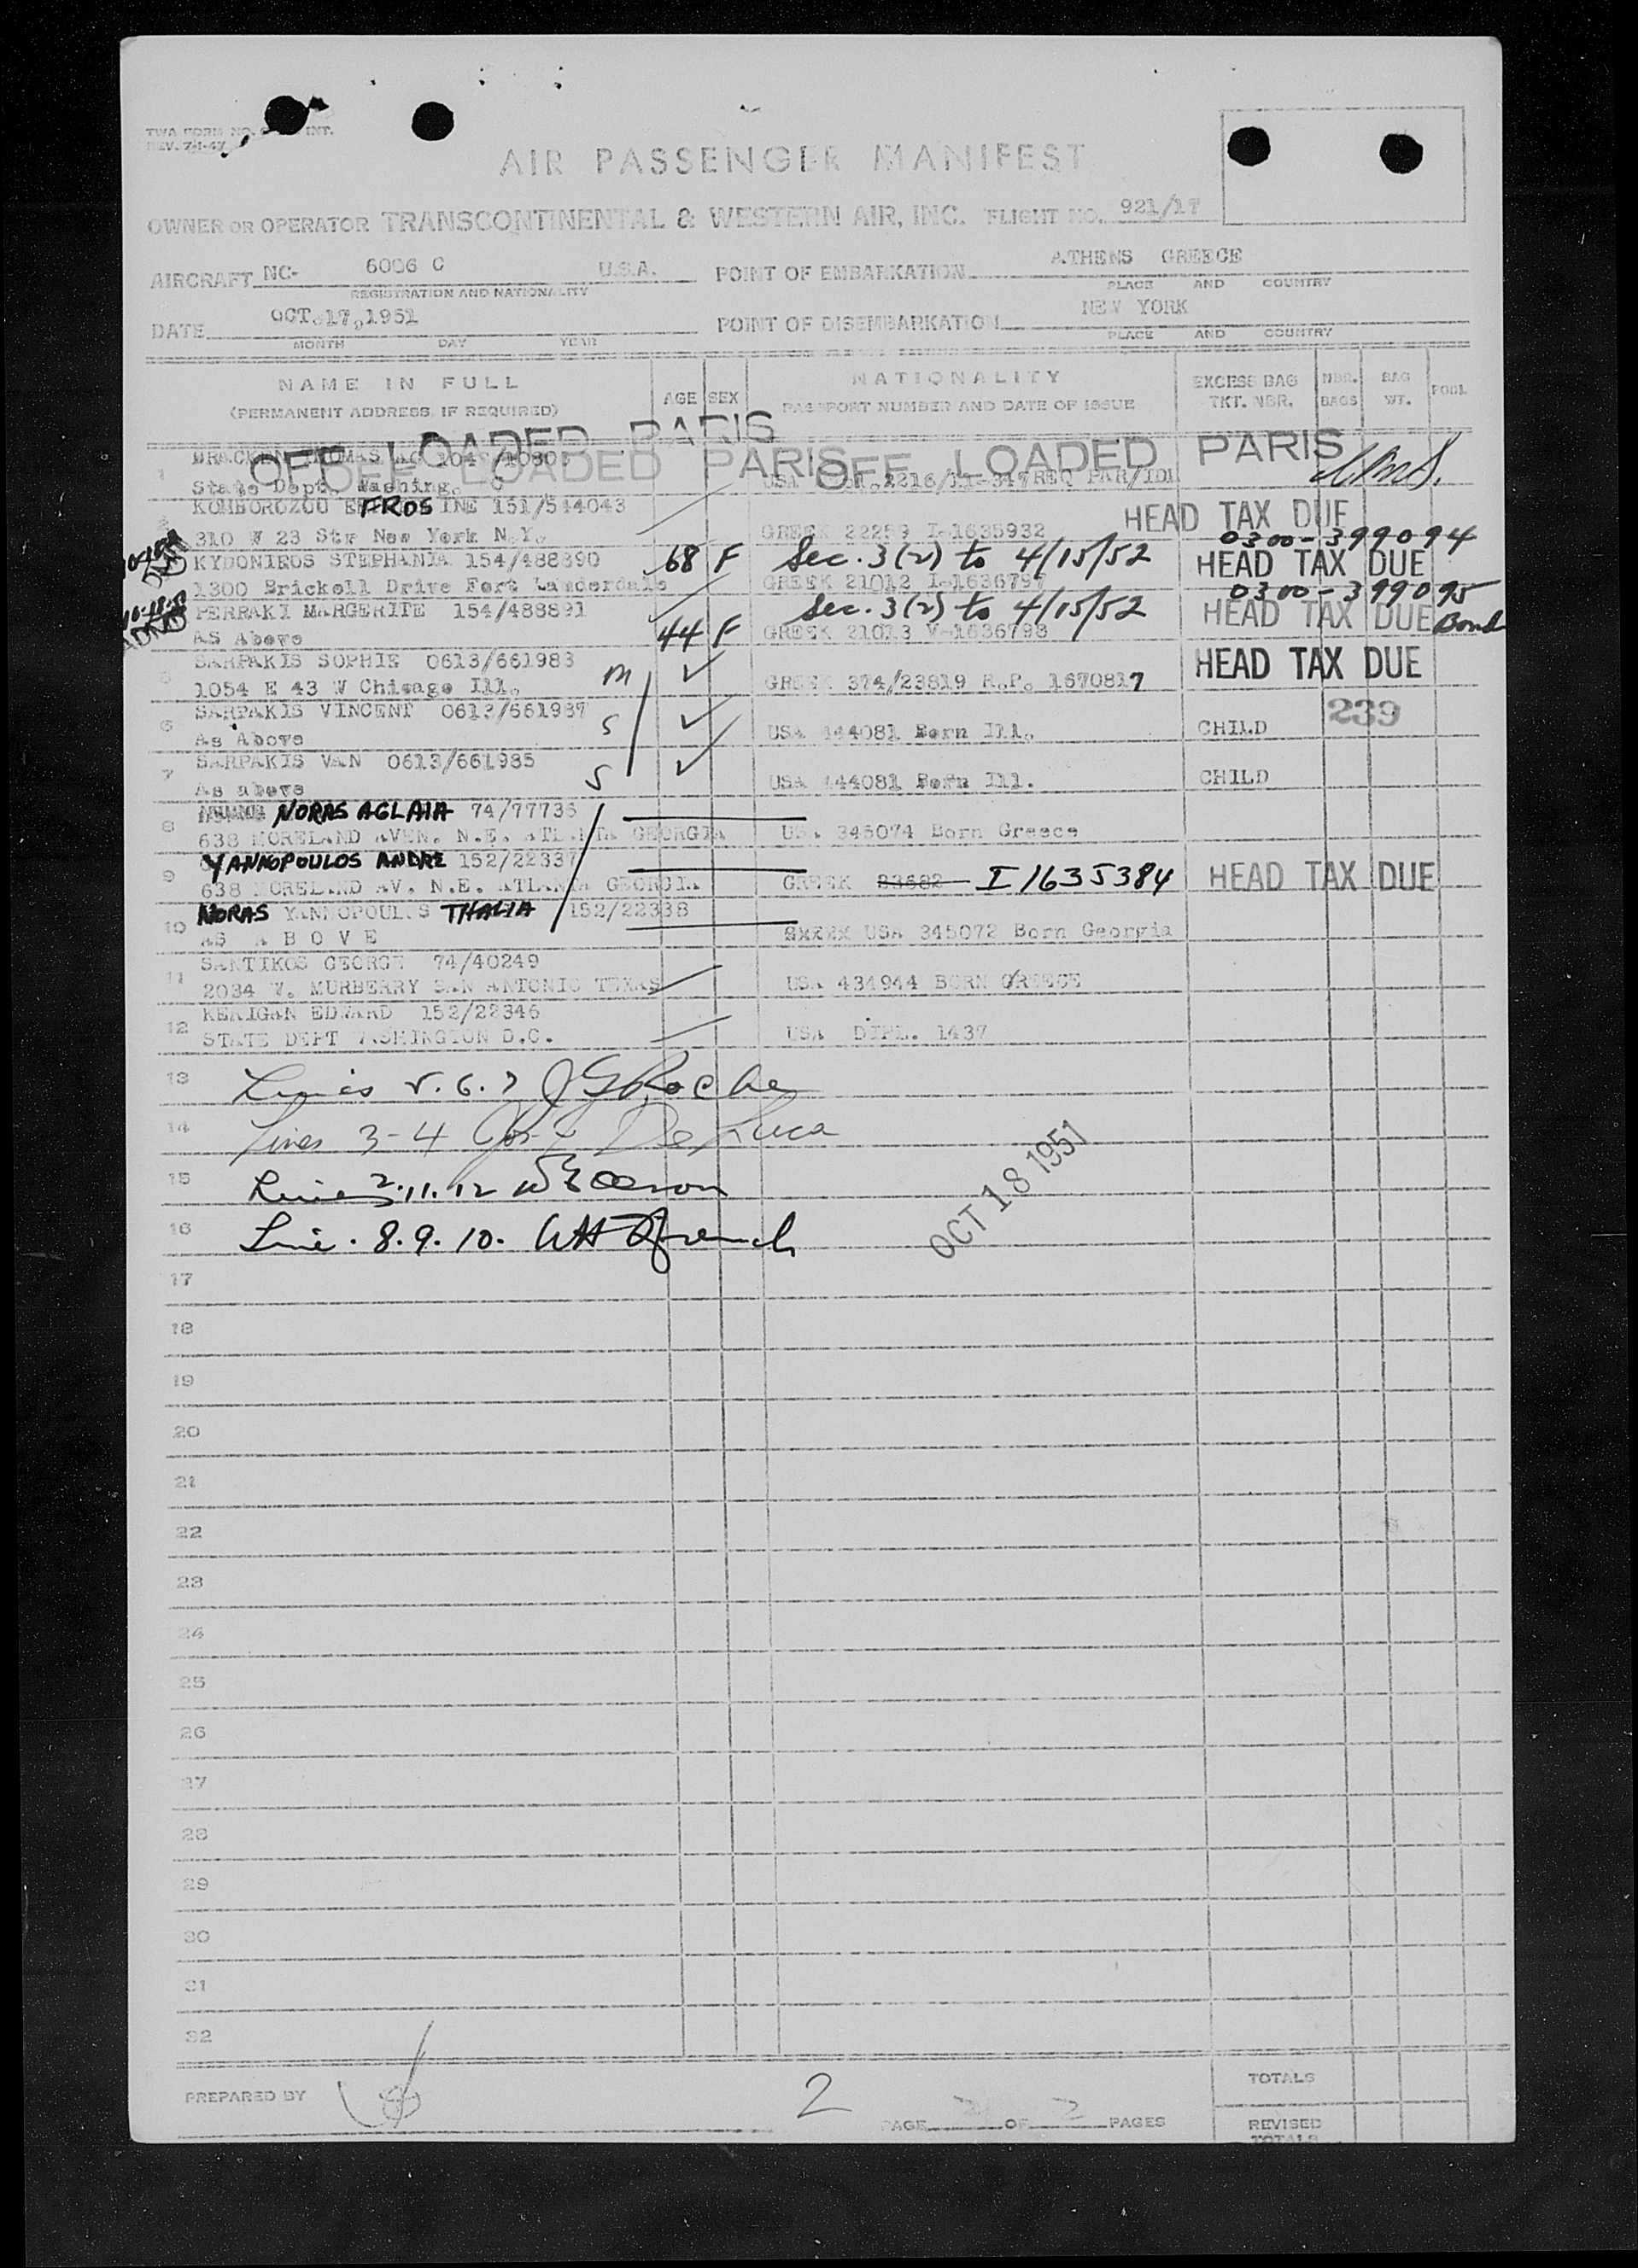 TWA FORM NO. INT.
REV. 7-1-47
AIR PASSENGER MANIFEST
OWNER OR OPERATOR TRANSCONTINENTAL & WESTERN AIR, INC. FLIGHT NO. 921/17
AIRCRAFT NC- 6006 C U.S.A. POINT OF EMBARKATION ATHENS GREECE
REGISTRATION AND NATIONALITY PLACE AND COUNTRY
DATE OCT.17,1951 POINT OF DISEMBARKATION NEW YORK
MONTH DAY YEAR PLACE AND COUNTRY
NAME IN FULL AGE SEX NATIONALITY EXCESS BAG NBR. BAG POOL
(PERMANENT ADDRESS, IF REQUIRED) PASSPORT NUMBER AND DATE OF ISSUE TKT. NBR. BAGS WT.
OFF LOADED PARIS
OFF LOADED PARIS OFF LOADED PARIS
1 BRACKEN THOMAS
State Dept. Washing. C USA REQ PAR/IDL
KOMBOROZOU FROS INE 151/544043 HEAD TAX DUE
310 W 23 Str New York N.Y. GREEK 22259 I-1635932 0300-399094
KYDONIEOS STEPHANIA 154/488890 68 F Sec. 3(2) to 4/15/52 HEAD TAX DUE
1300 Brickell Drive Fort Lauderdale GREEK 21012 I-1636797 0300-399095
PERRAKI MARGERITE 154/488891 44 F Sec. 3(2) to 4/15/52 HEAD TAX DUE Bond
AS Above GREEK 21013 V-1636798
5 SARPAKIS SOPHIE 0613/661983 M HEAD TAX DUE
1054 E 43 W Chicago Ill. GREEK 374/23819 R.P. 1670817
6 SARPAKIS VINCENT 0613/661987 S 239
As Above USA 444081 Born Ill. CHILD
7 SARPAKIS VAN 0613/661985 S
As above USA 444081 Born Ill. CHILD
8 NORAS AGLAIA 74/77736
638 MORELAND AVEN. N.E. ATLANTA GEORGIA USA 345074 Born Greece
9 YANNOPOULOS ANDRE 152/22337
638 MORELAND AV. N.E. ATLANTA GEORGIA GREEK 83682 I 1635384 HEAD TAX DUE
10 NORAS YANNOPOULOS THALIA 152/22338
AS ABOVE GREEK USA 345072 Born Georgia
11 SANTIKOS GEORGE 74/40249
2034 W. MURBERRY SAN ANTONIO TEXAS USA 434944 BORN GREECE
12 KERIGAN EDWARD 152/22346
STATE DEPT WASHINGTON D.C. USA DIPL. 1437
13 Lines 5.6.7 JG Roche
14 Lines 3-4 De Luca
15 Lines 2.11.12
16 Line. 8.9.10. French
OCT 18 1951
17
18
19
20
21
22
23
24
25
26
27
28
29
30
31
32
PREPARED BY 2 PAGE 2 OF 2 PAGES TOTALS
REVISED
TOTALS